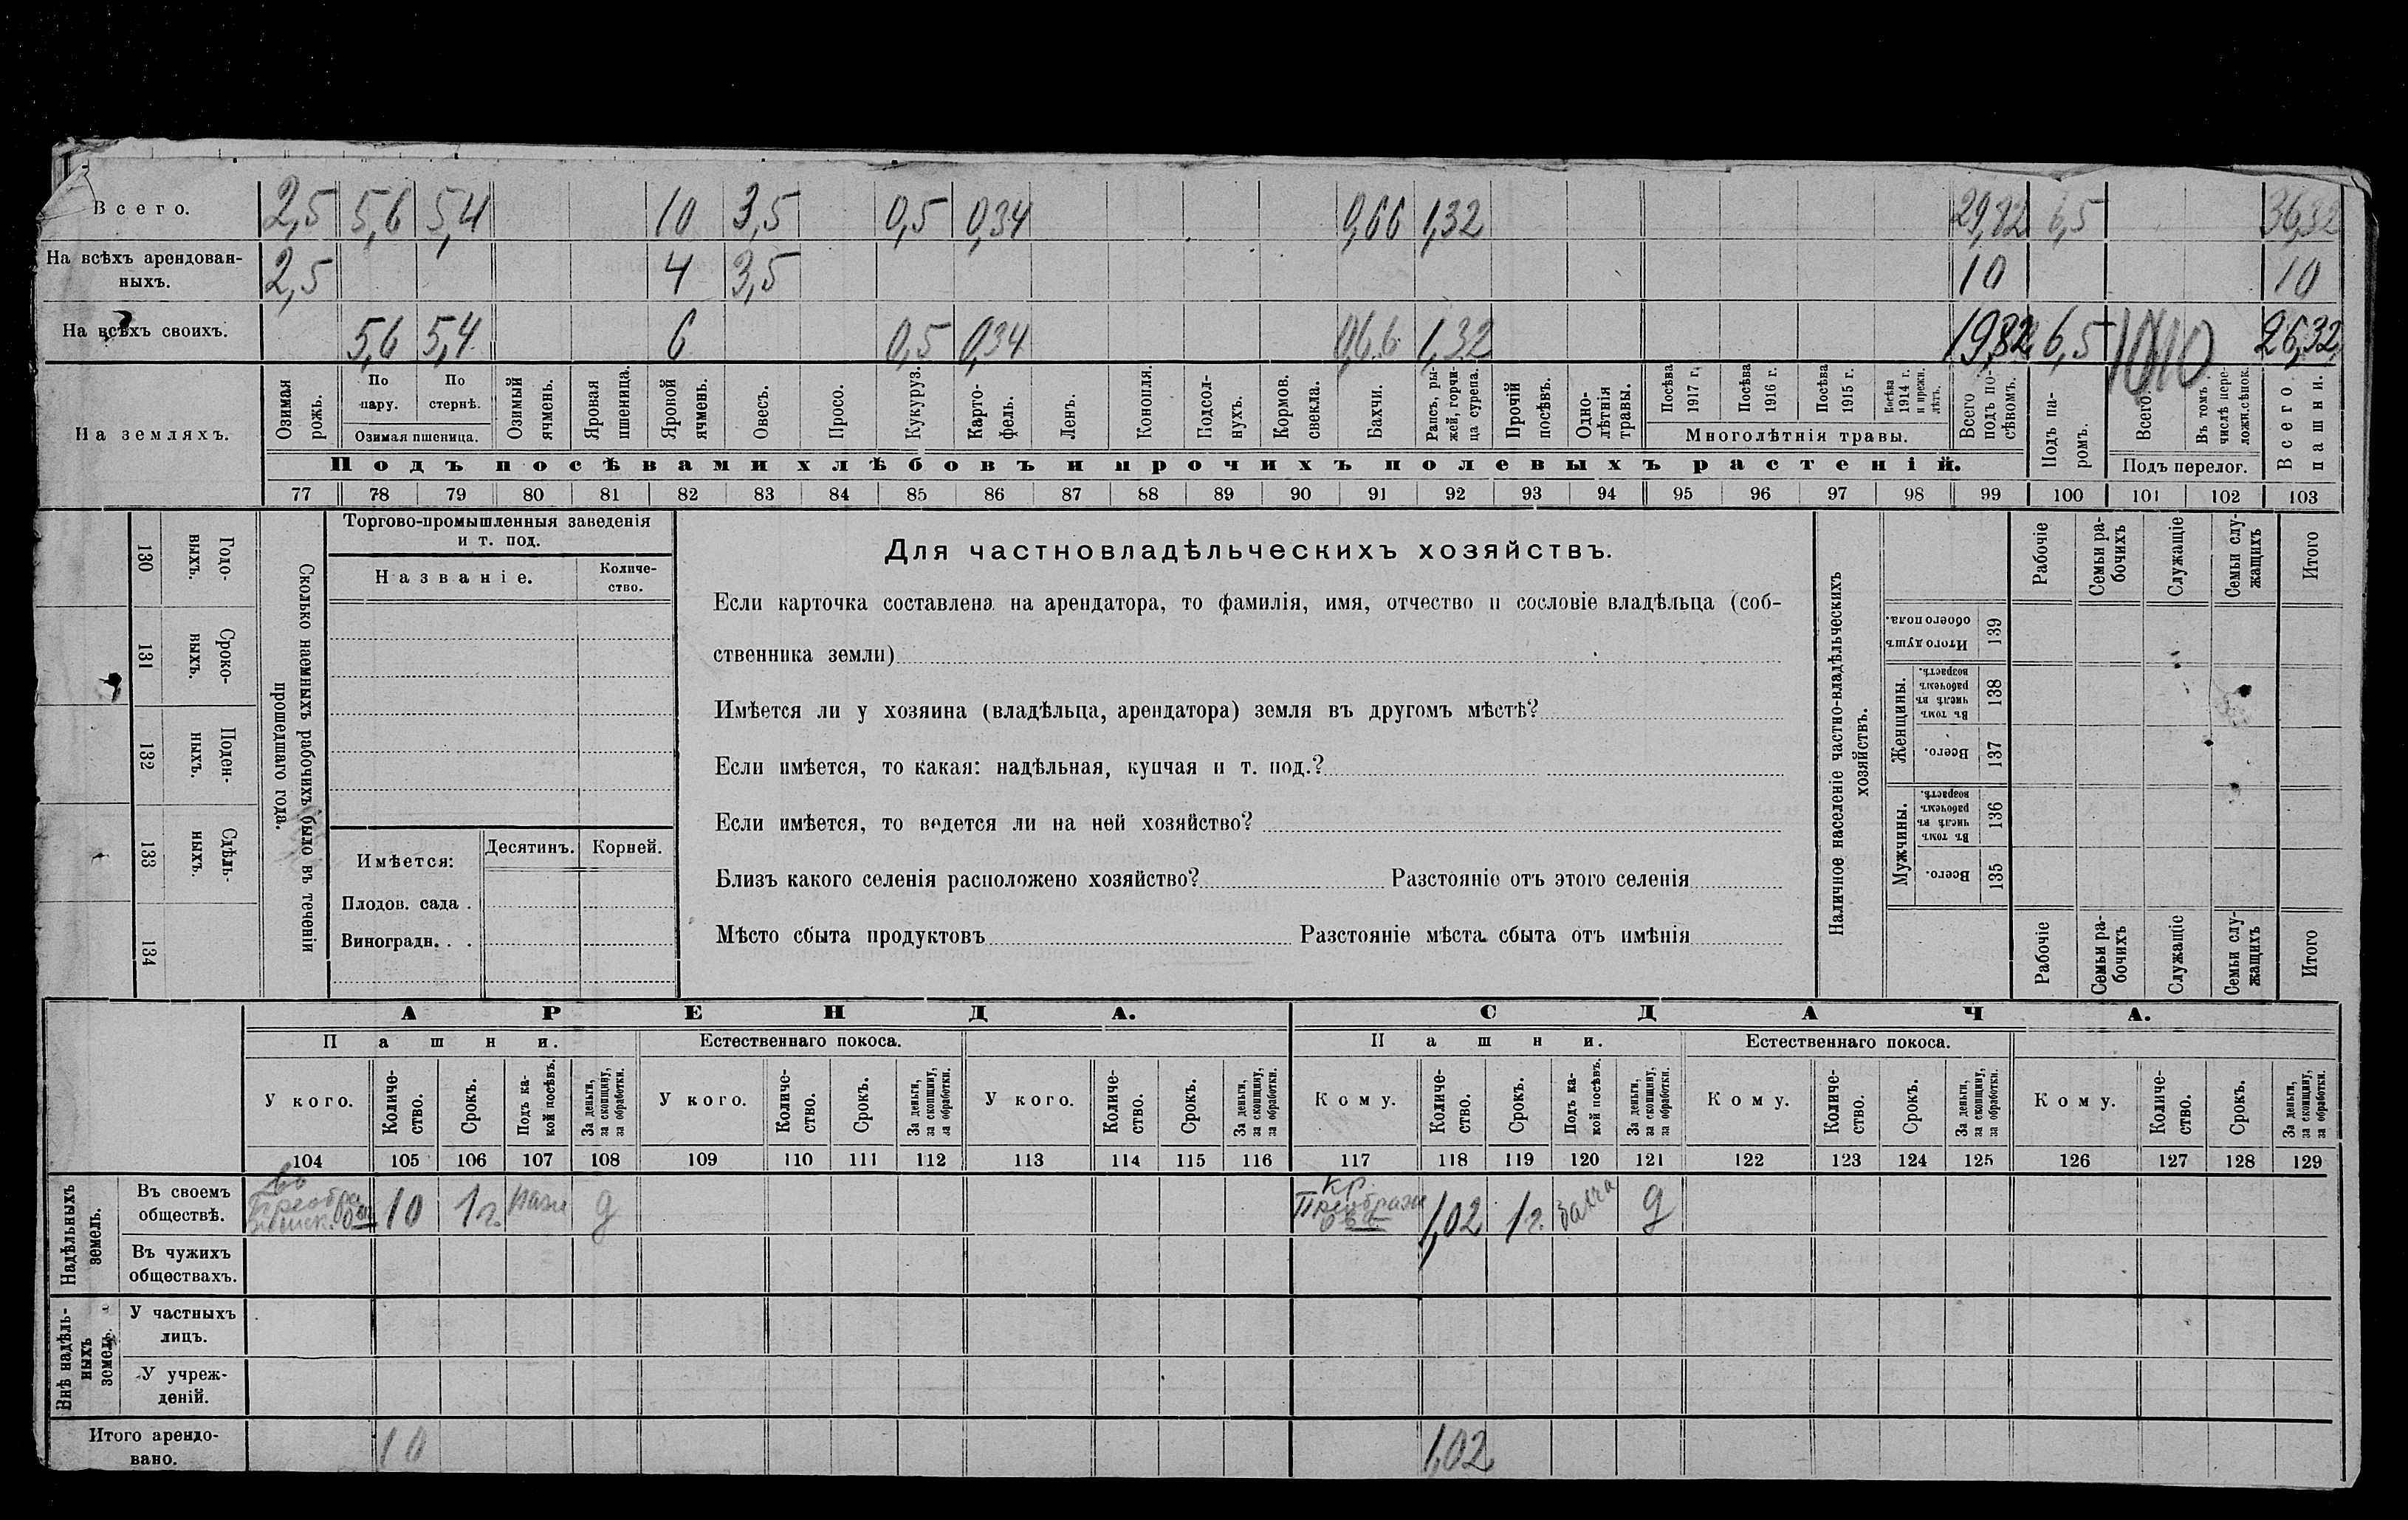 Всего. 2,5 5,6 5,4 10 3,5 0,5 0,34 0,66 1,32 29,82 6,5 36,32
На всѣхъ арендован-
ныхъ. 2,5 4 3,5 10 10
На всѣхъ своихъ. 5,6 5,4 6 0,5 0,34 0,66 1,32 19,82 6,5 26,32
На земляхъ.
Озимая рожь.
По пару.
По стернѣ.
Озимая пшеница.
Озимый ячмень.
Яровая пшеница.
Яровой ячмень.
Овесъ.
Просо.
Кукуруз.
Карто-
фель.
Ленъ.
Конопля.
Подсол-
нухъ.
Кормов.
свекла.
Бахчи.
Рапсъ, ры-
жей, горчи-
ца сурепа.
Прочій
посѣвъ.
Одно-
лѣтнія
травы.
Посѣва
1917 г.
Посѣва
1916 г.
Посѣва
1915 г.
Посѣва
1914 г.
и прежн.
лѣтъ.
Многолѣтнія травы.
Всего
подъ по-
сѣвомъ.
Подъ па-
ромъ.
Всего.
Въ томъ
числѣ пере-
лож. сѣнок.
Подъ перелог.
Всего
пашни.
Подъ посѣвами хлѣбовъ и прочихъ полевыхъ растеній.
77 78 79 80 81 82 83 84 85 86 87 88 89 90 91 92 93 94 95 96 97 98 99 100 101 102 103
130 Годо-
выхъ.
131 Сроко-
выхъ.
132 Поден-
ныхъ.
133 Сдѣль-
ныхъ.
134
Сколько наемныхъ рабочихъ было въ теченіи
прошедшаго года.
Торгово-промышленныя заведенія
и т. под.
Названіе.
Количе-
ство.
Имѣется:
Десятинъ.
Корней.
Плодов. сада .
Виноградн. . .
Для частновладѣльческихъ хозяйствъ.
Если карточка составлена на арендатора, то фамилія, имя, отчество и сословіе владѣльца (соб-
ственника земли)
Имѣется ли у хозяина (владѣльца, арендатора) земля въ другомъ мѣстѣ?
Если имѣется, то какая: надѣльная, купчая и т. под.?
Если имѣется, то ведется ли на ней хозяйство?
Близъ какого селенія расположено хозяйство? Разстояніе отъ этого селенія
Мѣсто сбыта продуктовъ Разстояніе мѣста сбыта отъ имѣнія
Наличное населеніе частно-владѣльческихъ
хозяйствъ.
Рабочіе
Семьи ра-
бочихъ
Служащіе
Семьи слу-
жащихъ
Итого
Итого душъ
обоего пола.
139
Женщины.
Въ томъ
числѣ въ
рабочемъ
возрастѣ.
138
Всего.
137
Мужчины.
Въ томъ
числѣ въ
рабочемъ
возрастѣ.
136
Всего.
135
Рабочіе
Семьи ра-
бочихъ
Служащіе
Семьи слу-
жащихъ
Итого
АРЕНДА. СДАЧА.
Пашни. Естественнаго покоса. Пашни. Естественнаго покоса.
У кого.
Количе-
ство.
Срокъ.
Подъ ка-
кой посѣвъ.
За деньги,
за скопщину,
за обработки.
У кого.
Количе-
ство.
Срокъ.
За деньги,
за скопщину,
за обработки.
У кого.
Количе-
ство.
Срокъ.
За деньги,
за скопщину,
за обработки.
Кому.
Количе-
ство.
Срокъ.
Подъ ка-
кой посѣвъ.
За деньги,
за скопщину,
за обработки.
Кому.
Количе-
ство.
Срокъ.
За деньги,
за скопщину,
за обработки.
Кому.
Количе-
ство.
Срокъ.
За деньги,
за скопщину,
за обработки.
104 105 106 107 108 109 110 111 112 113 114 115 116 117 118 119 120 121 122 123 124 125 126 127 128 129
Надѣльныхъ
земель.
Въ своемъ
обществѣ. 10 1 г. д кр. 1,02 1 г. д
Въ чужихъ
обществахъ.
Внѣ надѣль-
ныхъ
земель.
У частныхъ
лицъ.
У учреж-
деній.
Итого арендо-
вано. 10 1,02